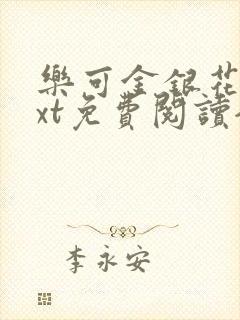 樂可金銀花
xt免費閱讀
李永安